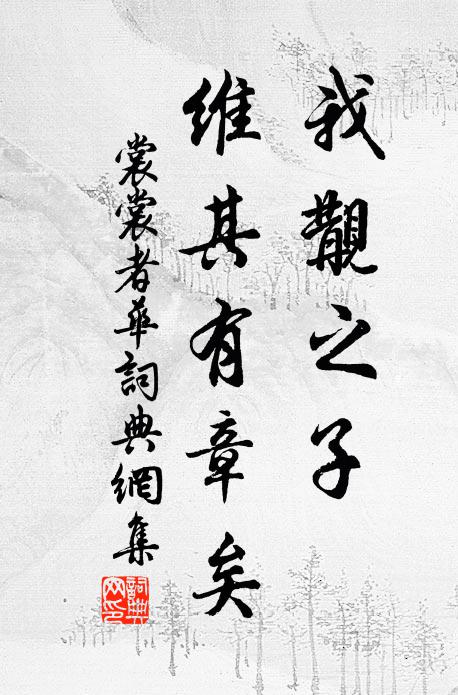 我覯之子
維其有章矣
裳裳者華詞典網集
詞典
网印